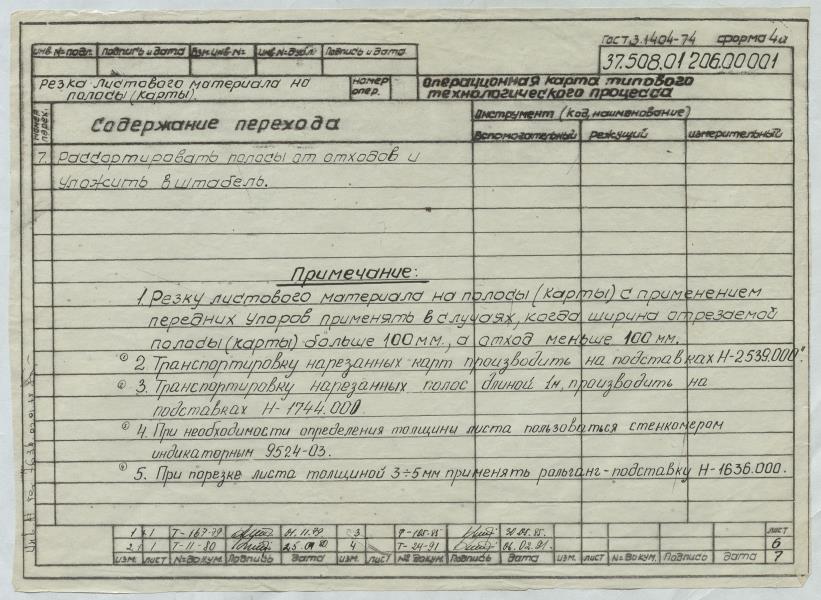 ГОСТ 3.1404-74 форма 4а
Инв.№подл. Подпись и дата Взм.инв.№ Инв.№дубл. Подпись и дата
37.508.01206.00001
Резка листового материала на полосы (карты).
номер опер.
Операционная карта типового технологического процесса
номер перех.
Содержание перехода
Инструмент (код, наименование)
вспомогательный режущий измерительный
7. Рассортировать полосы от отходов и
уложить в штабель.
Примечание:
1. Резку листового материала на полосы (карты) с применением
передних упоров применять в случаях, когда ширина отрезаемой
полосы (карты) больше 100 мм., а отход меньше 100 мм.
2. Транспортировку нарезанных карт производить на подставках Н-2539.000.
3. Транспортировку нарезанных полос длиной 1м, производить на
подставках Н-1744.000.
4. При необходимости определения толщины листа пользоваться стенкомером
индикаторным 9524-03.
5. При порезке листа толщиной 3÷5 мм применять рольганг-подставку Н-1636.000.
1 1 Т-167-79 01.11.79 3
2 1 Т-11-80 4 Т-24-91 06.02.91.
изм. лист №докум. Подпись дата изм. лист №докум. Подпись дата изм. лист №докум. Подпись дата
лист
6
7